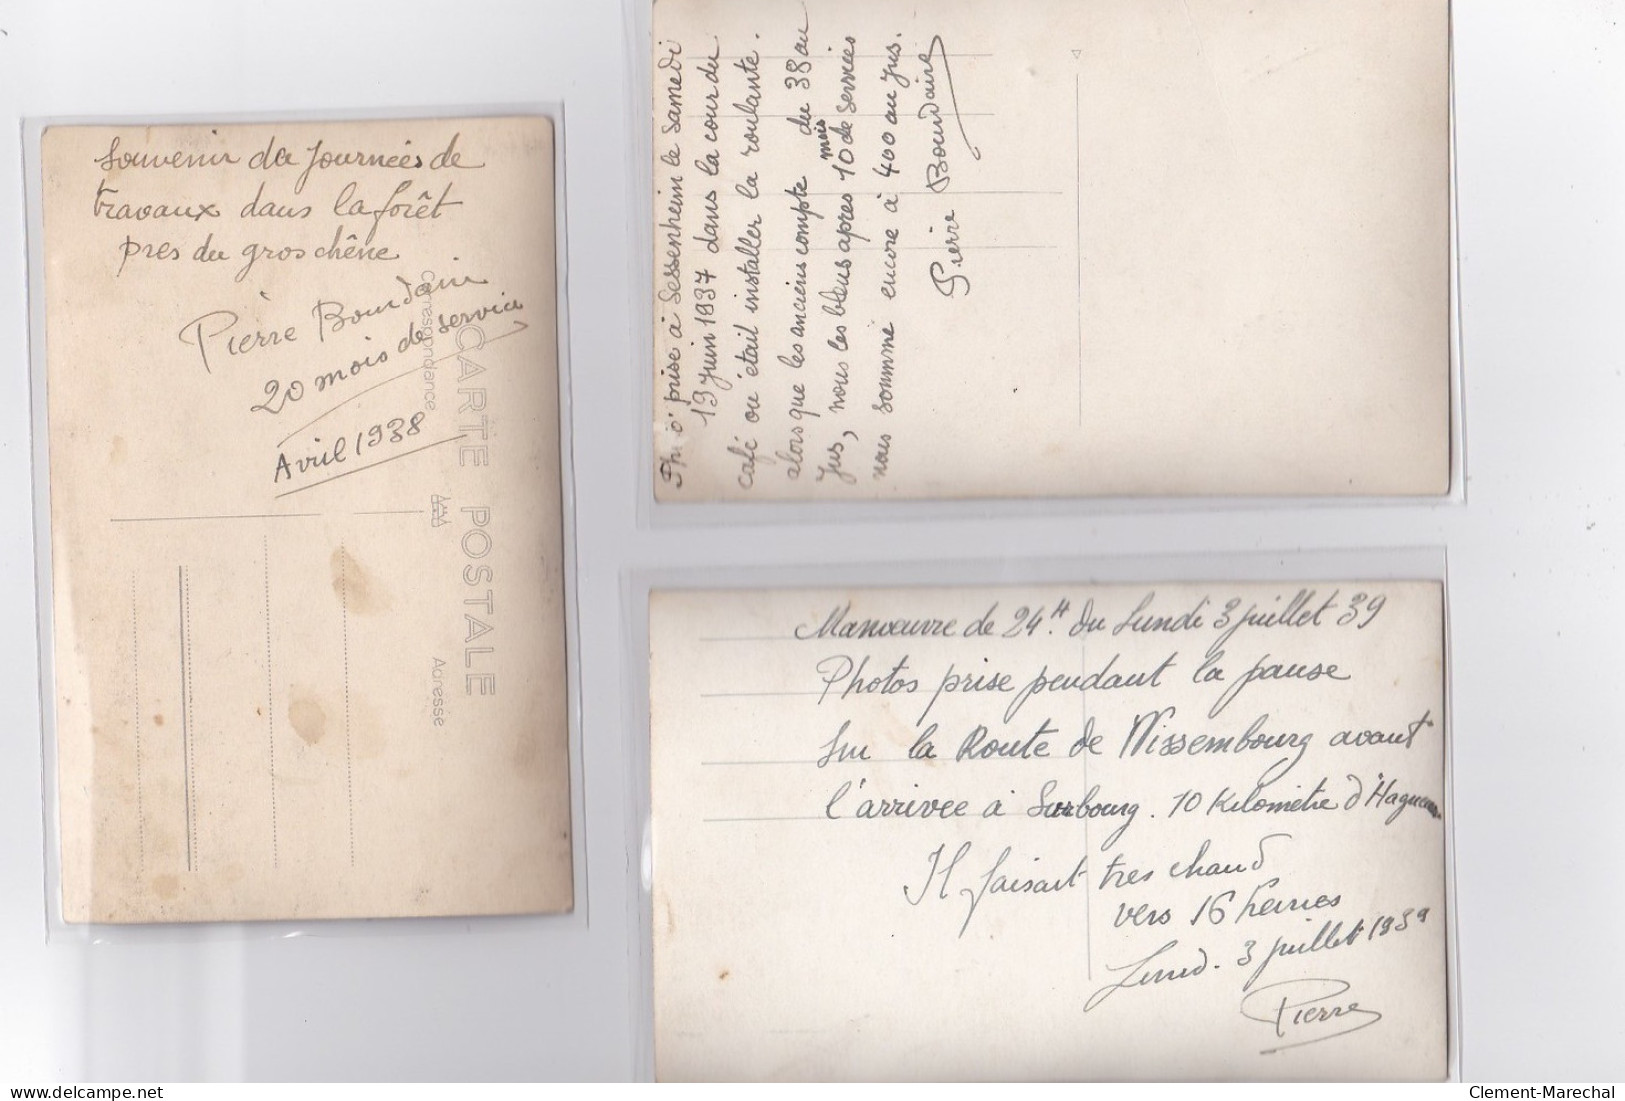 Souvenir de Journées de
travaux dans la forêt
près du gros chêne
Pierre Bourdaire
20 mois de service
Avril 1938
CARTE POSTALE
Correspondance
Adresse
prise à Sessenheim le Samedi
19 Juin 1937 dans la cour du
café ou était installer la roulante.
alors que les anciens compte du 38 au
Jus, nous les bleus apres 10 mois de Services
nous somme encore à 400 au Jus.
Pierre Bourdaire
Manœuvre de 24H. du Lundi 3 juillet 39
Photos prise pendant la pause
Sur la Route de Wissembourg avant
l'arrivee à Surbourg. 10 Kilometre d'Haguenau
Il faisait tres chaud
vers 16 heures
Lund. 3 juillet 1939
Pierre
Clement-Marechal